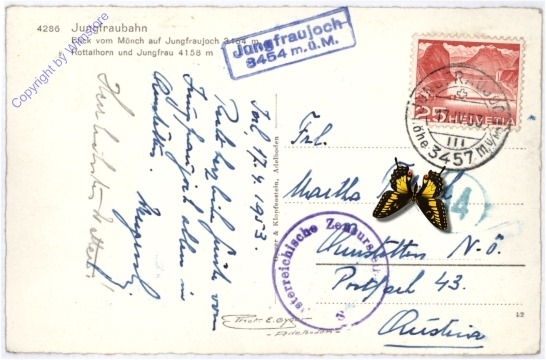 4286 Jungfraubahn
Blick vom Mönch auf Jungfraujoch 3454 m
Rottalhorn und Jungfrau 4158 m
Copyright by Whilstore
Jungfraujoch
3454 m.ü.M.
HELVETIA
JUNGFRAUJOCH
Höhe 3457 m ü/M
III
Joch, 17.4.1953.
Recht herzliche Grüsse vom
Jungfraujoch allen in
Amstetten.
Frl.
Martha
Amstetten N.-Ö.
Postfach 43.
Austria
4
Österreichische Zensurstelle
Gyger & Klopfenstein, Adelboden
Phot. E. Gyger
Adelboden
12